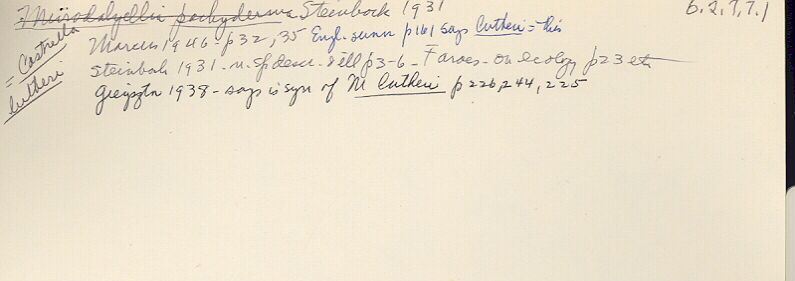 ? Microdalyellia pachyderma Steinbock 1931
6.2.7.7.1
= Castrella lutheri
Marcus 1946 - p32, 35 Engl. summ p161 says lutheri = this
Steinbock 1931 - n. sp descr. & ill p3-6 - Faroes - on ecology p23 etc
Gieysztor 1938 - says is syn of M lutheri p226, 244, 225